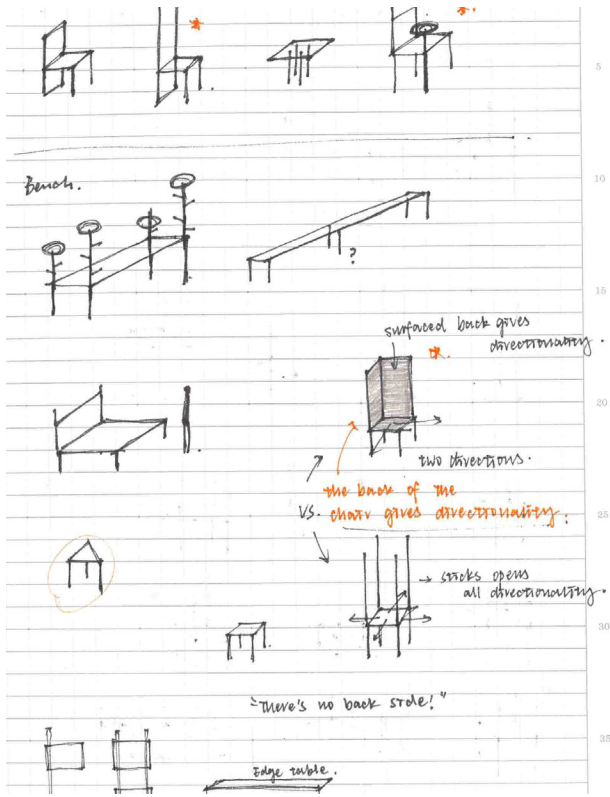 5
10
Bench.
?
15
surfaced back gives
directionality.
20
two directions.
the back of the
VS. chair gives directionality.
25
→ sticks opens
all directionality.
30
"There's no back side!"
35
Edge table.